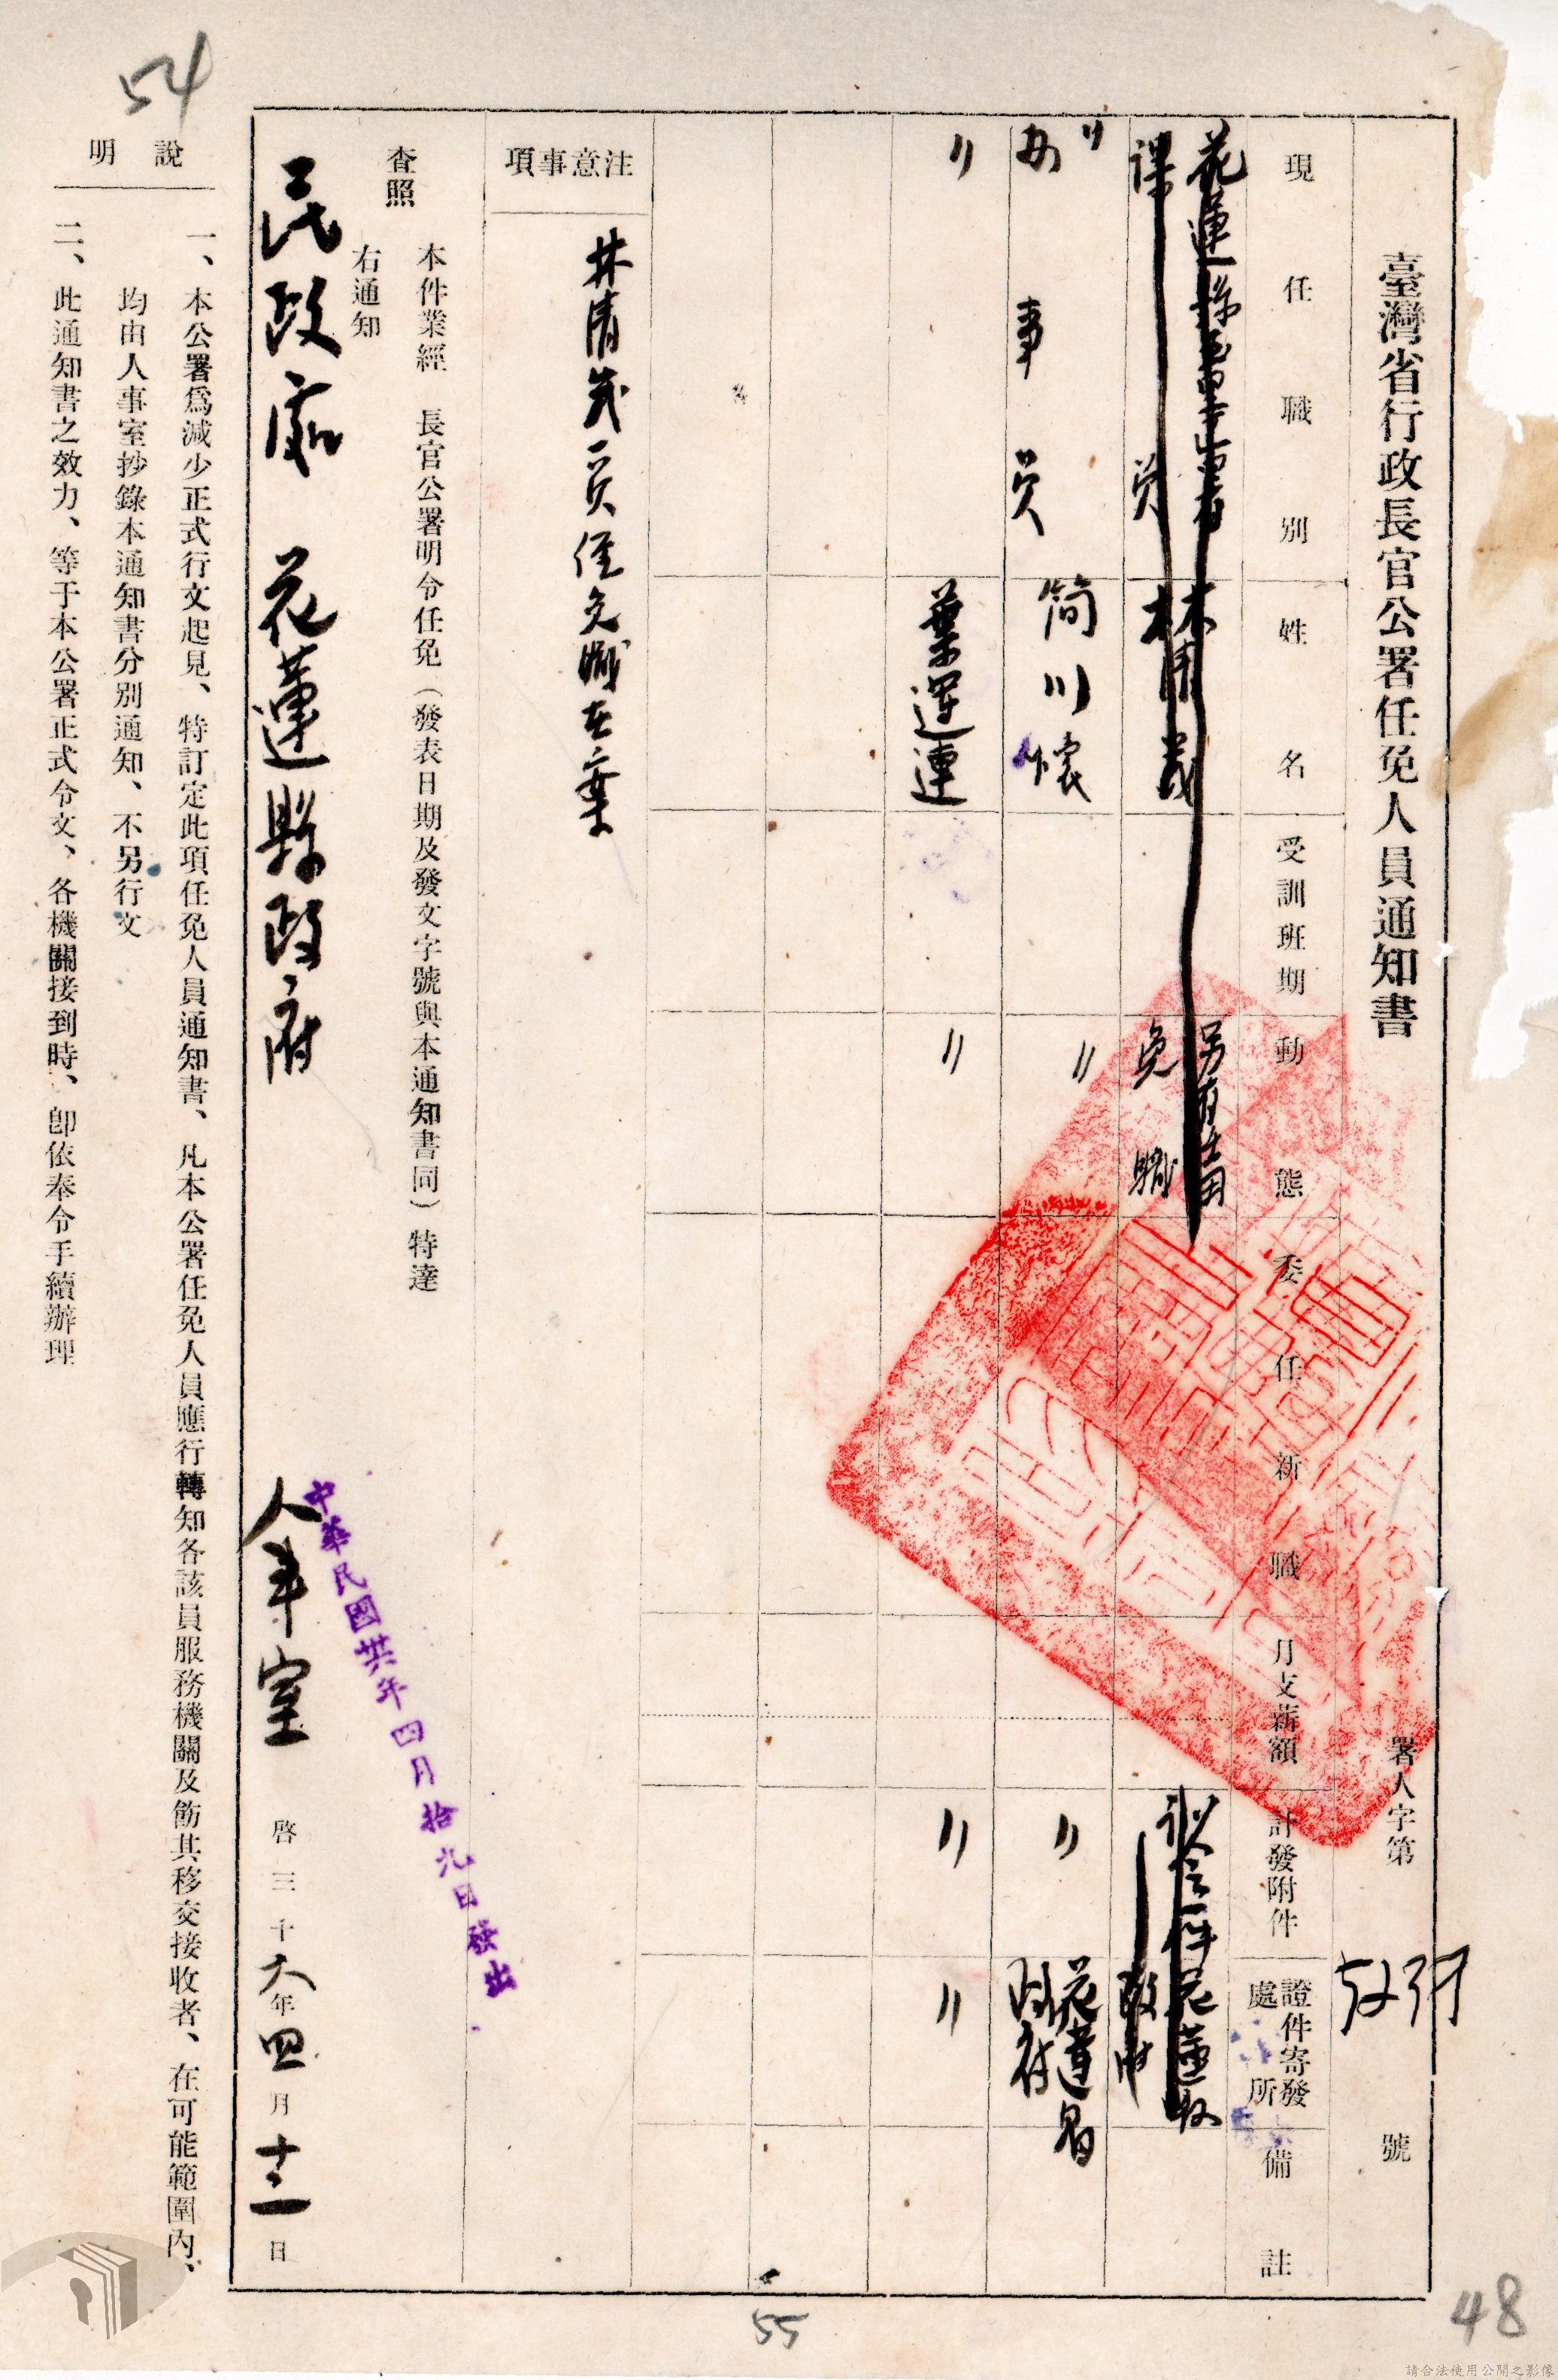 臺灣省行政長官公署任免人員通知書
署人字第
號
現任職別
姓名
受訓班期
動態
委任新職
月支薪額
計發附件
證件寄發處所
備註
課員
林清茂
另有任用
免職
花蓮
〃
事員
簡川懷
〃
〃
〃
葉運連
〃
〃
〃
注意事項
林清茂一員
查照
本件業經 長官公署明令任免（發表日期及發文字號與本通知書同）特達
右通知
民政處 花蓮縣政府
人事室 啓 三十六年四月十二日
中華民國卅六年四月拾九日發出
說明
一、本公署爲減少正式行文起見、特訂定此項任免人員通知書、凡本公署任免人員應行轉知各該員服務機關及飭其移交接收者、在可能範圍內、
均由人事室抄錄本通知書分別通知、不另行文
二、此通知書之效力、等于本公署正式令文、各機關接到時、卽依奉令手續辦理
54
55
48
請合法使用公開之影像